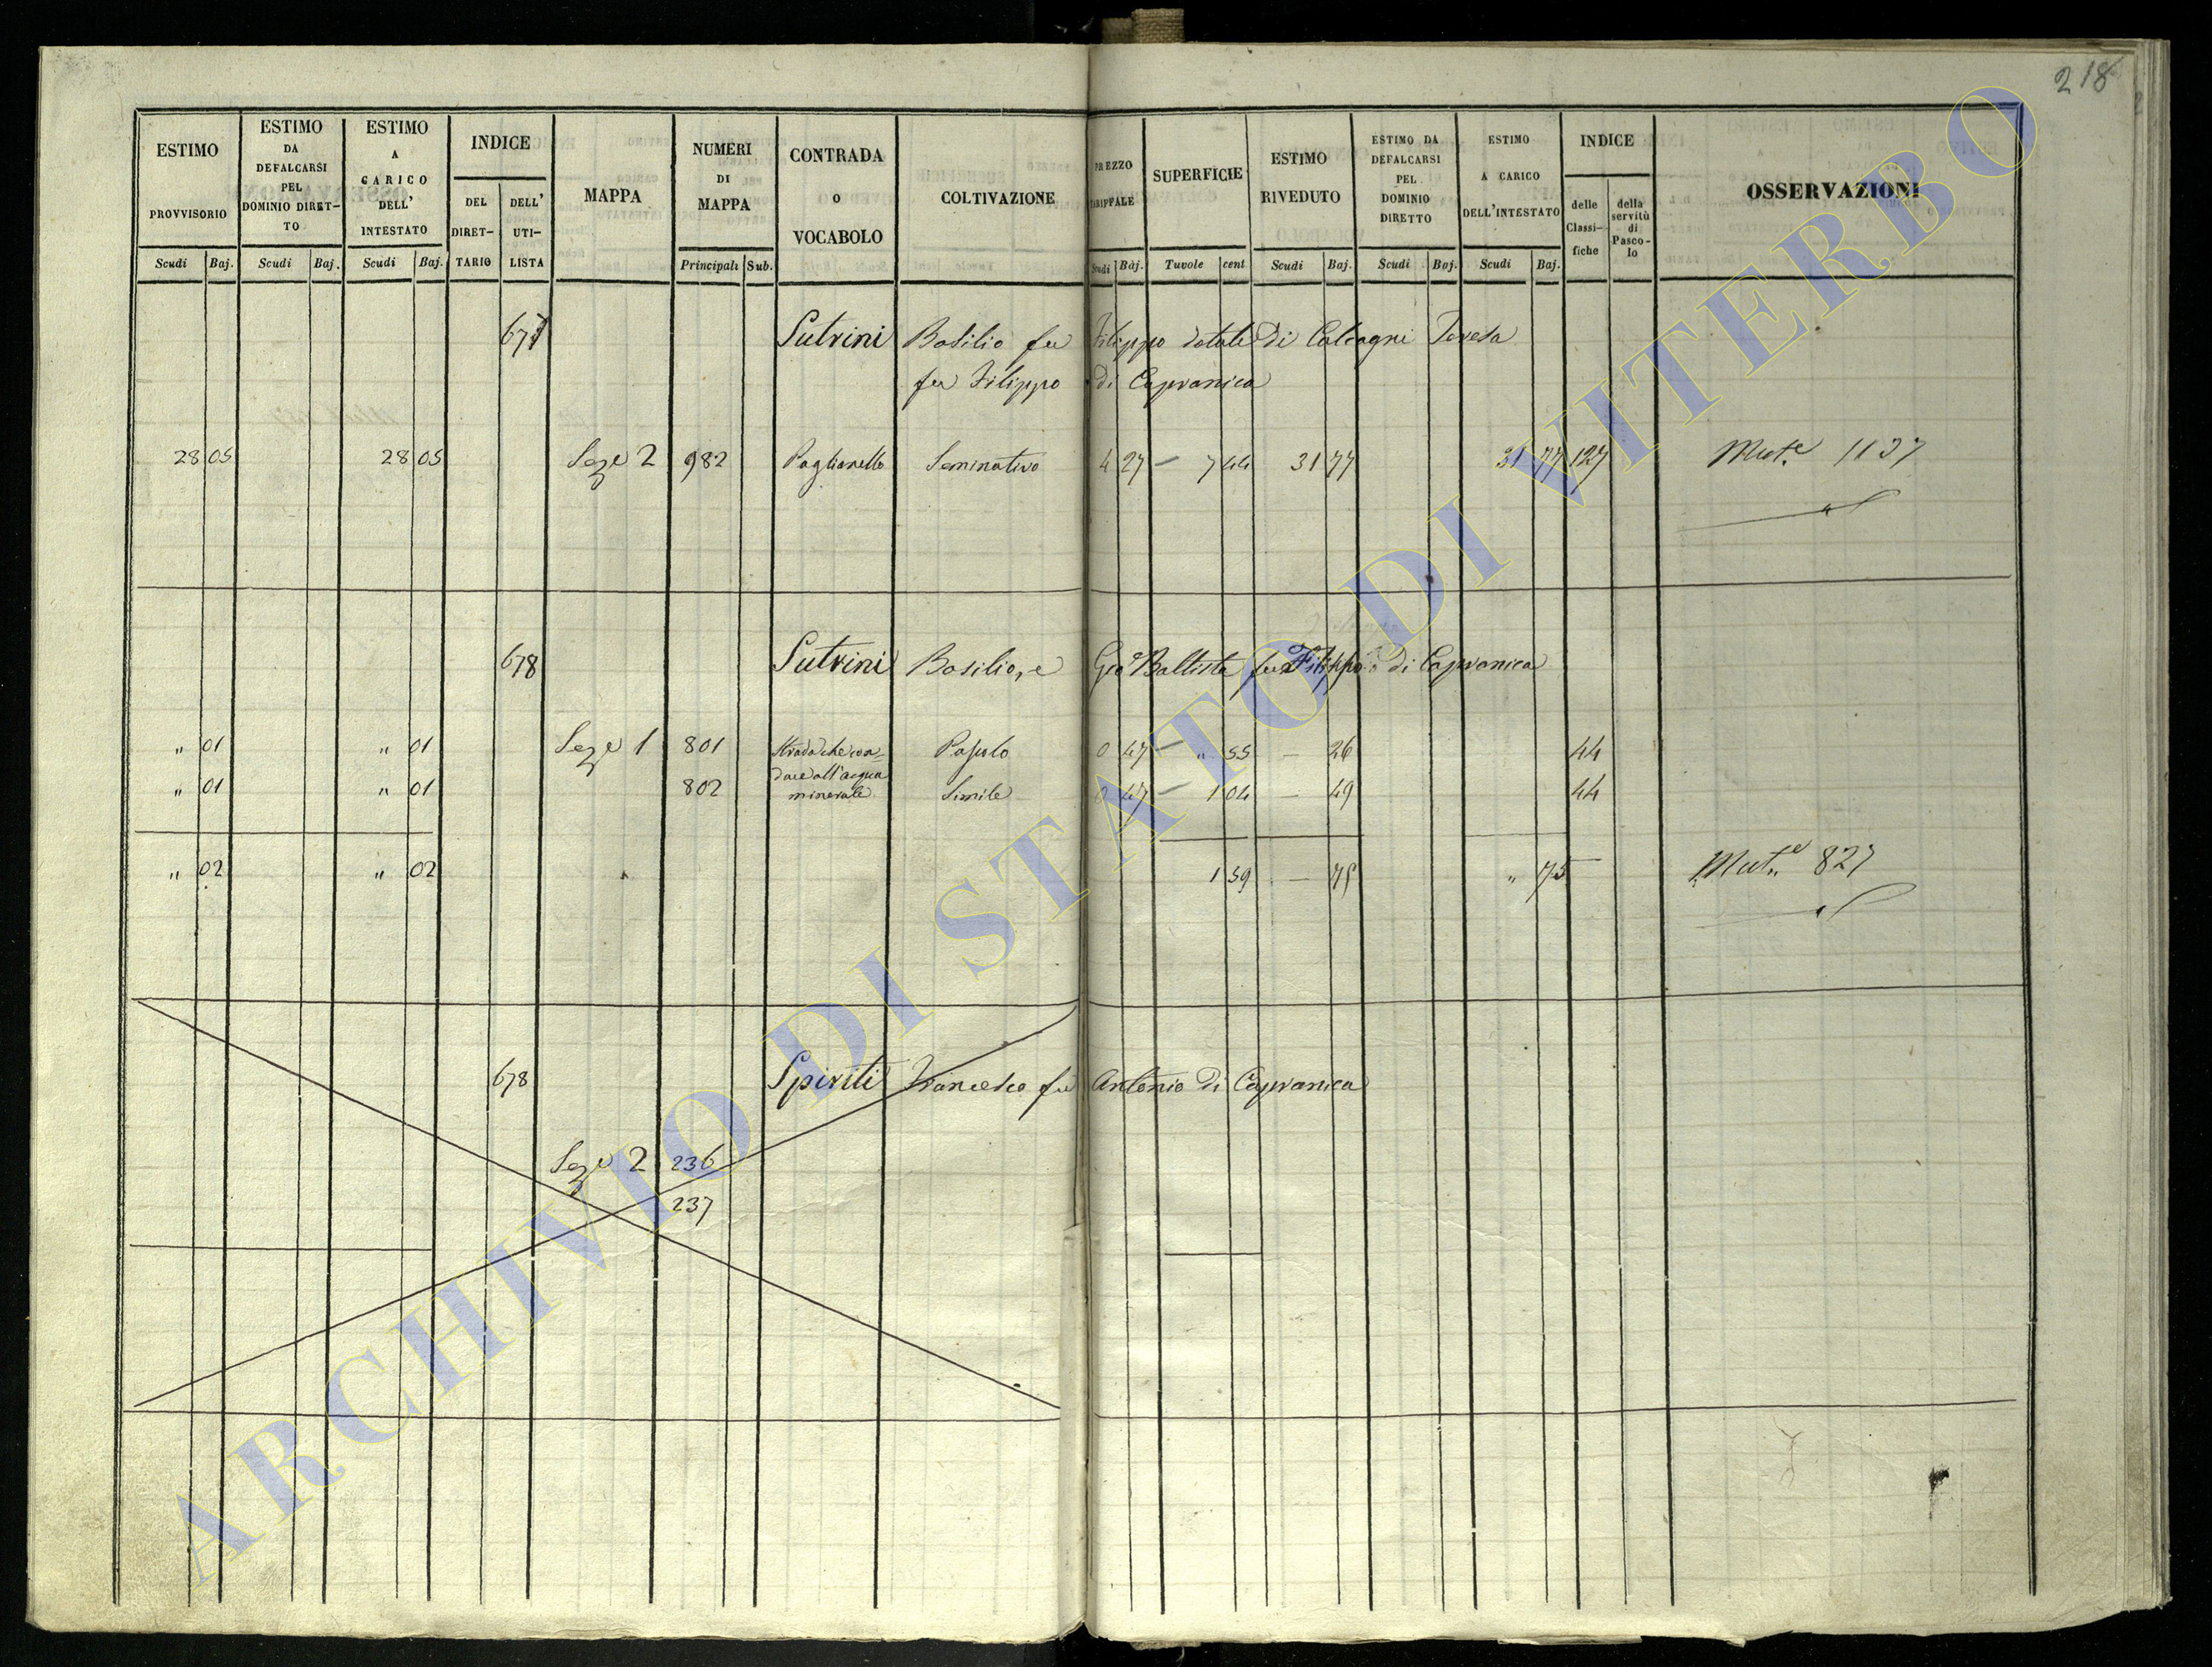 218
ESTIMO PROVVISORIO
ESTIMO DA DEFALCARSI PEL DOMINIO DIRET– TO
ESTIMO A CARICO DELL' INTESTATO
INDICE
DEL DIRET– TARIO
DELL' UTI– LISTA
MAPPA
NUMERI DI MAPPA
CONTRADA O VOCABOLO
COLTIVAZIONE
PREZZO TARIFFALE
SUPERFICIE
ESTIMO RIVEDUTO
ESTIMO DA DEFALCARSI PEL DOMINIO DIRETTO
ESTIMO A CARICO DELL'INTESTATO
INDICE
delle Classi– fiche
della servitù di Pasco– lo
OSSERVAZIONI
Scudi Baj. Scudi Baj. Scudi Baj. Principali Sub. Scudi Baj. Tavole cent Scudi Baj. Scudi Baj. Scudi Baj.
677 Sutrini Basilio fu Filippo dotale di Calcagni Teresa
fu Filippo di Capranica
28 05 28 05 Seze 2 982 Paglianello Seminativo 4 27 – 7 44 31 77 31 77 127 Mute 1137
678 Sutrini Basilio, e Gio Battista fu Filippo di Capranica
" 01 " 01 Seze 1 801 Strada che con= Pascolo 0 47 – " 55 – 26 44
duce all'acqua
" 01 " 01 802 minerale Simile 0 47 – 1 04 – 49 44
" 02 " 02 1 59 – 75 " 75 Mute 827
678 Spiriti Francesco fu Antonio di Capranica
Seze 2 236
237
ARCHIVIO DI STATO DI VITERBO